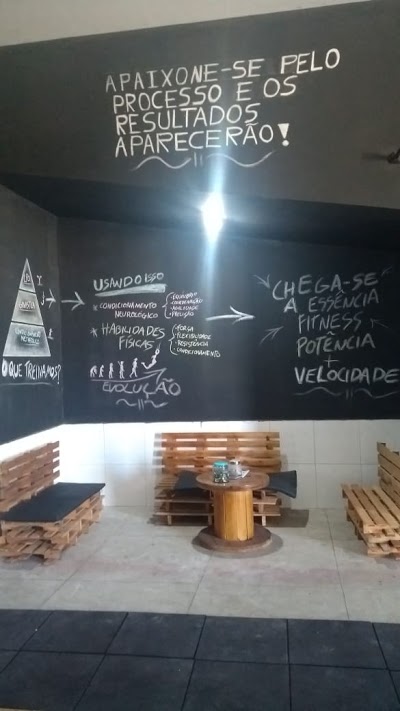 APAIXONE-SE PELO
PROCESSO E OS
RESULTADOS
APARECERÃO!
O QUE TREINAMOS?
USANDO ISSO
* CONDICIONAMENTO
NEUROLÓGICO
- EQUILÍBRIO
- COORDENAÇÃO
- AGILIDADE
- PRECISÃO
* HABILIDADES
FÍSICAS
- FORÇA
- FLEXIBILIDADE
- RESISTÊNCIA
- CONDICIONAMENTO
EVOLUÇÃO
CHEGA-SE
A ESSÊNCIA
FITNESS
POTÊNCIA
+
VELOCIDADE